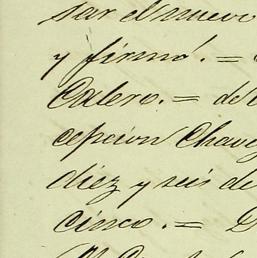 sar el nuevo
y firmó. =
Calero. = de
cepcion Chave
diez y seis de
cinco. = D